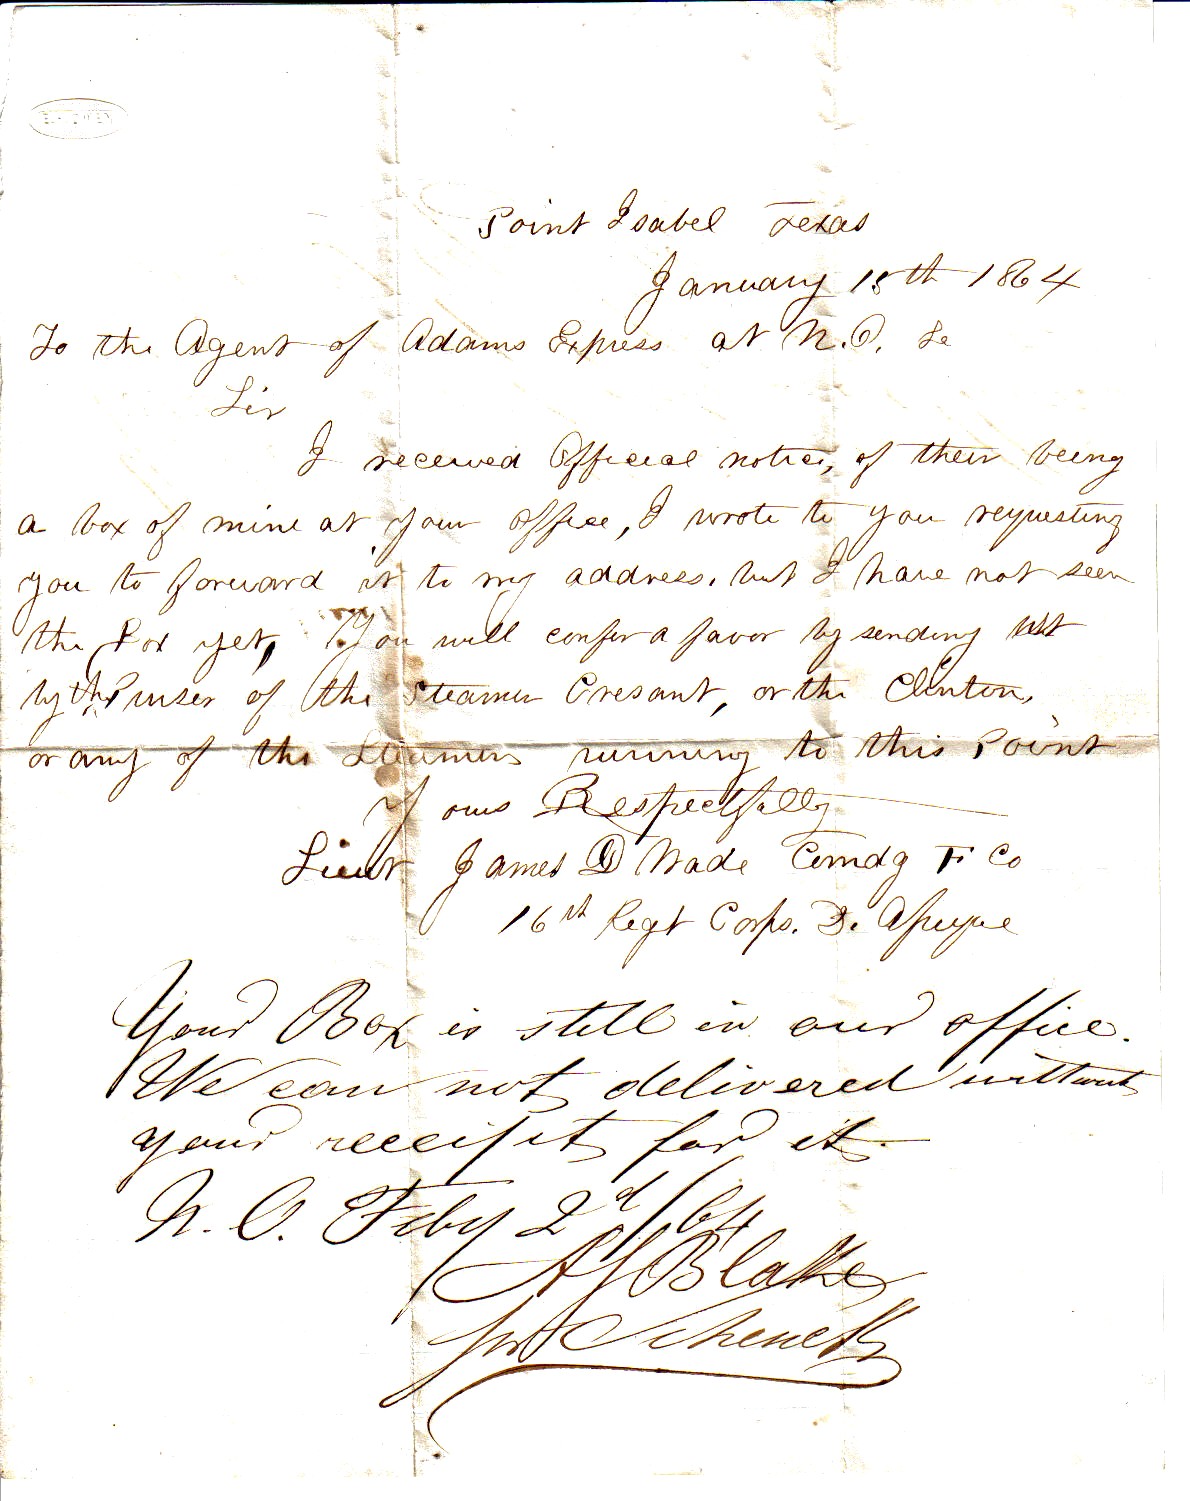 Point Isabel Texas
January 15th 1864
To the Agent of Adams Express at N.O. La
Sir
I received Official notice, of their being
a box of mine at your office, I wrote to you requesting
you to forward it to my address. but I have not seen
the Box yet, You will confer a favor by sending it
by the Purser of the Steamer Cresant, or the Clinton,
or any of the Steamers running to this Point
Yours Respectfully
Lieut James D Wade Comdg F Co
16th Regt Corps. D. Afrique
Your Box is still in our office.
We can not delivered without
your receipt for it.
N.O. Feby 2d /64
A J Blake
Schenck